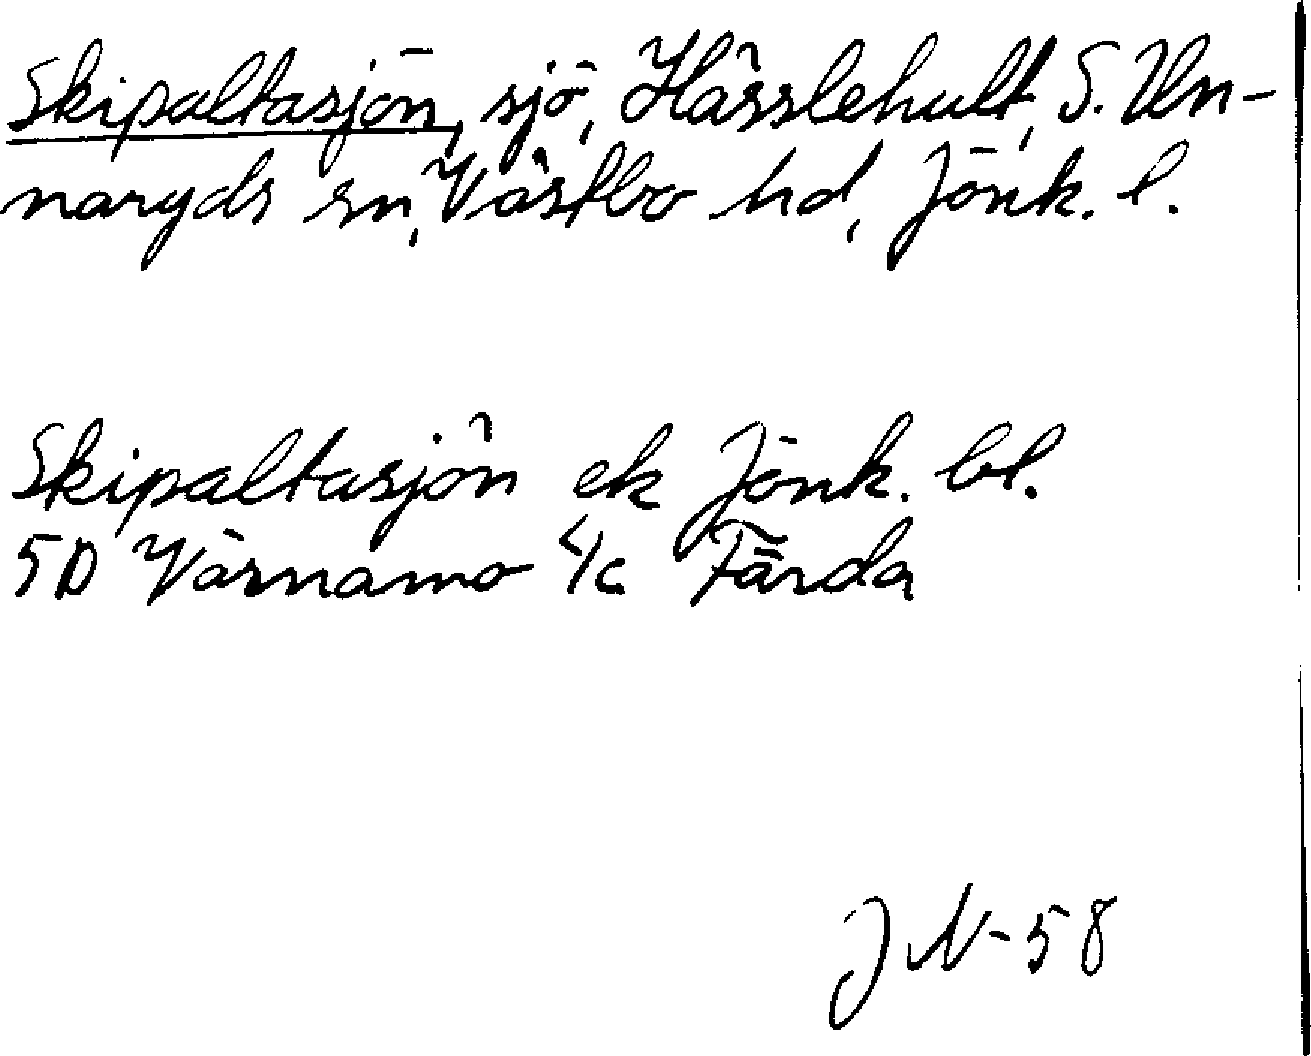 Skipaltasjön, sjö, Hässlehult, S. Un-
naryds sn, Västbo hd, Jönk. l.
Skipaltasjön ek Jönk. bl.
5D Värnamo 4c Färda
JN-58